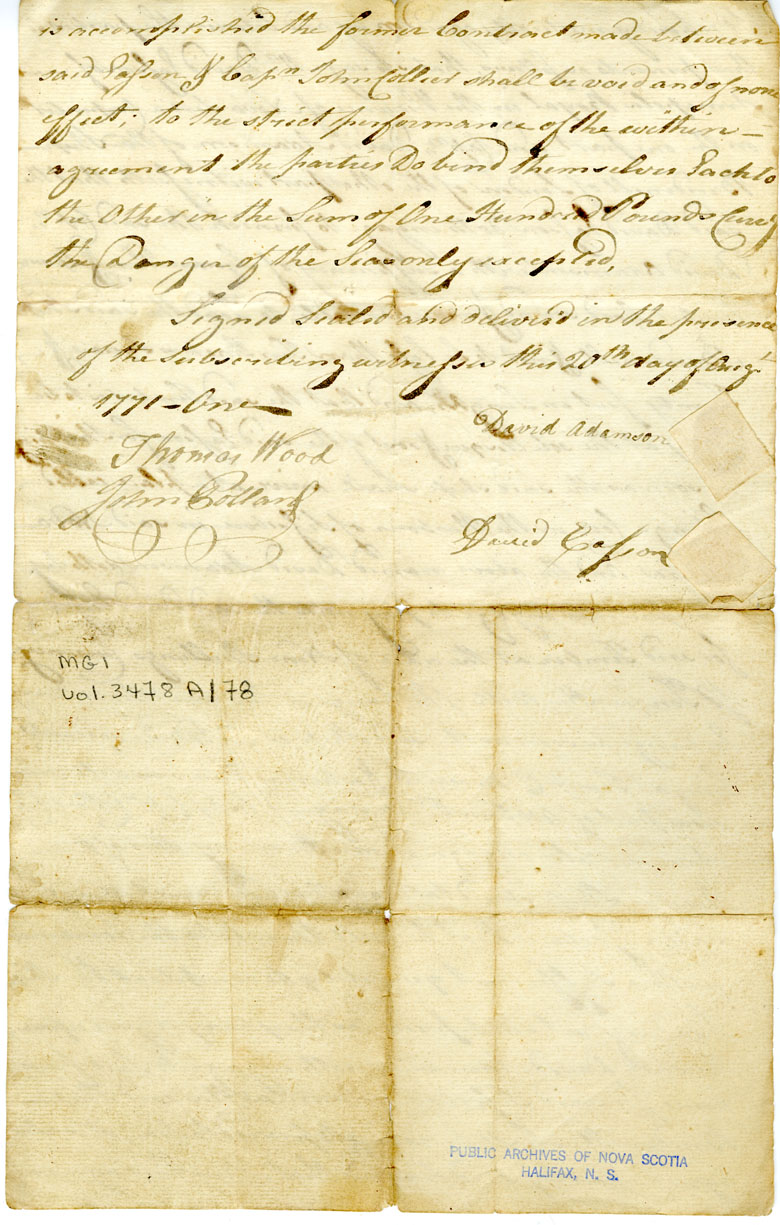 is accomplished the former Contract made between
said Easson & Capn John Collier shall be void and of none
effect; to the strict performance of the within –
agreement the parties Do bind themselves Each to
the Other in the Sum of One Hundred Pounds Curry
the Danger of the Seas only excepted,
Signed Sealed and deliver'd in the presence
of the Subscribing witnesses this 20th day of Augt
1771 – One
David Adamson
Thomas Wood
John Pollard
David Easson
MG1
Vol. 3478 A/78
PUBLIC ARCHIVES OF NOVA SCOTIA
HALIFAX, N. S.